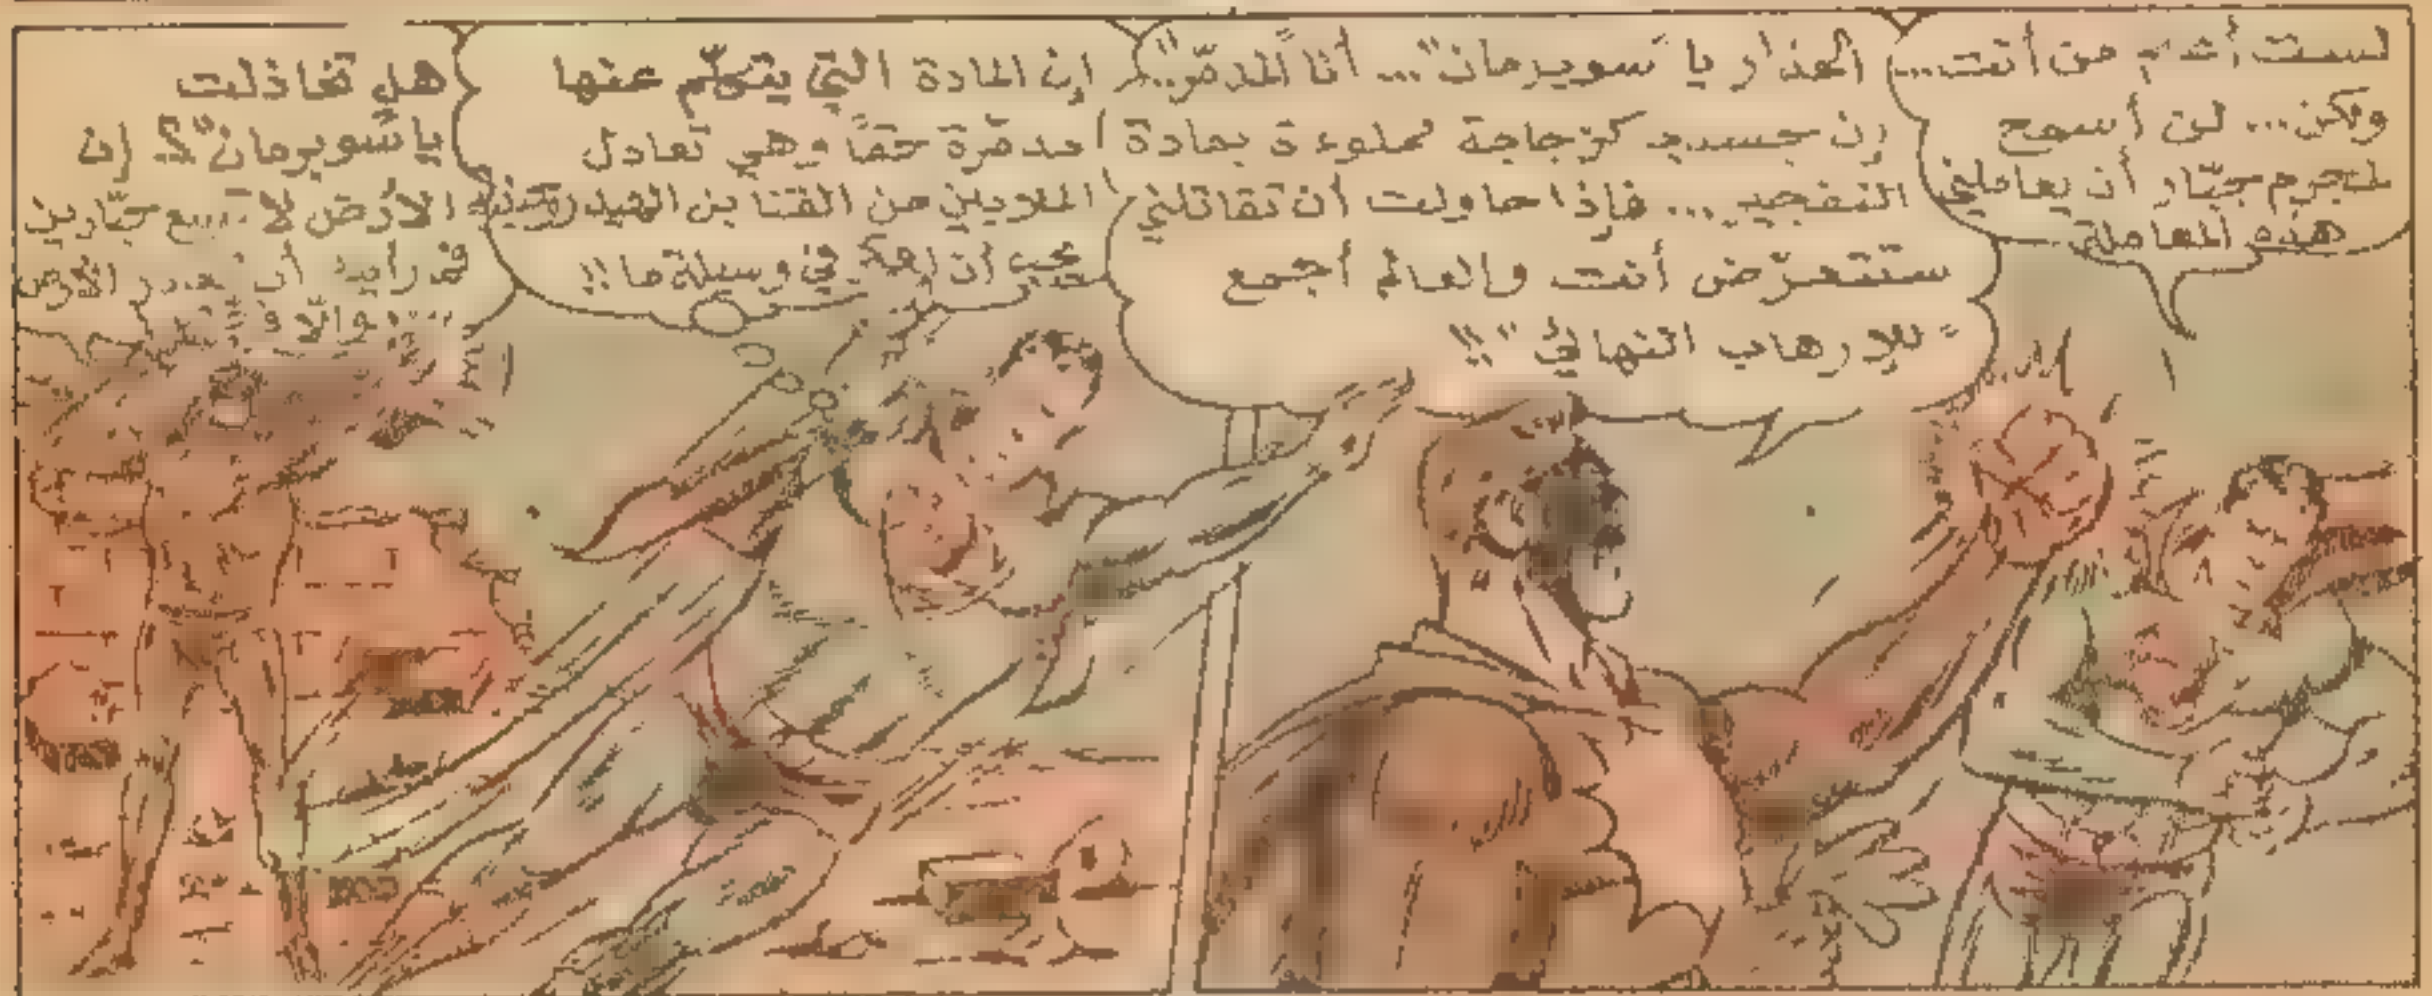 لست أشاء من أنت...
ولكن... لن أسمح
لمجرم جبّار أن يعاملني
هذه المعاملة
الحذار يا "سوبرمان"... أنا "المدمّر"..
إن جسدي كزجاجة مملوءة بمادة
التفجير... فإذا حاولت أن تقاتلني
ستتعرّض أنت والعالم أجمع
"للإرهاب النهائي"!!
إن المادة التي يتكلّم عنها
مدمّرة حقاً وهي تعادل
الملايين من القنابل الهيدروجينية
يجب أن أفكر في وسيلة ما!!
هل تخاذلت
يا "سوبرمان"؟! إن
الأرض لا تسع جبّارين
أن الأرض
وإلّا